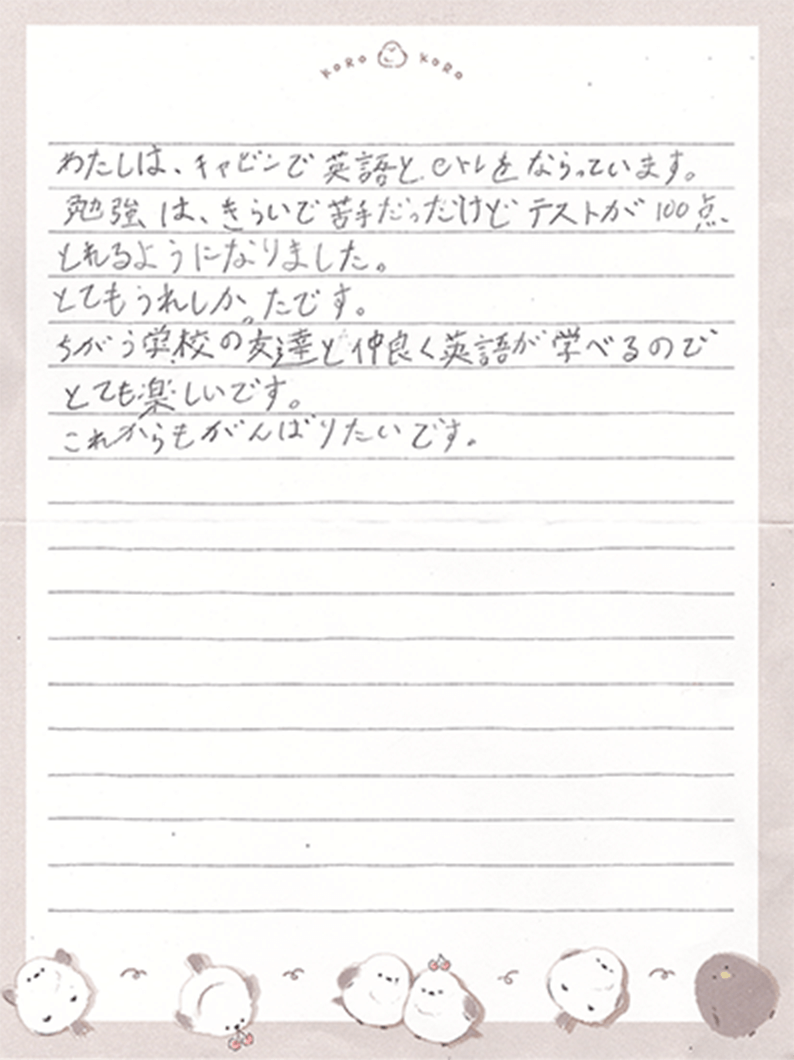 KORO KORO
わたしは、キャビンで英語とeトレをならっています。
勉強は、きらいで苦手だったけど テストが100点、
とれるようになりました。
とてもうれしかったです。
ちがう学校の友達と仲良く英語が学べるので
とても楽しいです。
これからもがんばりたいです。